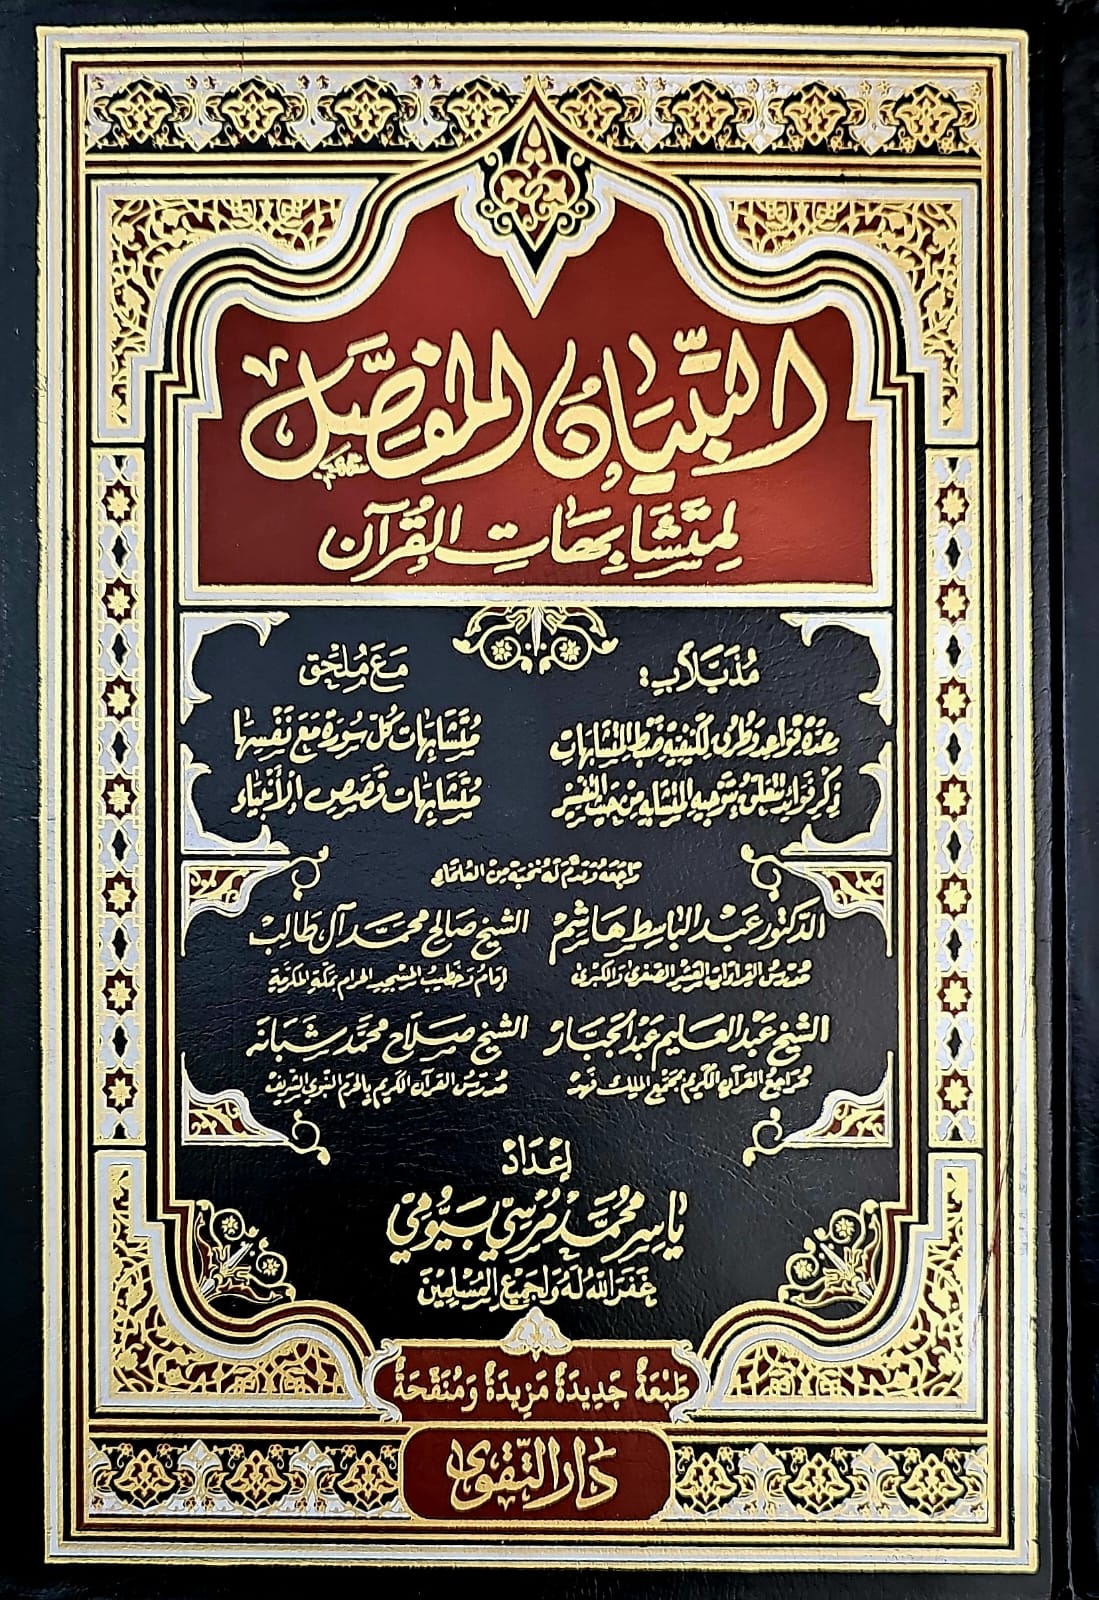 التبيان المفصل
لمتشابهات القرآن
مُذَيَّلاً بـ:
بعدة قواعد وطرق لكيفية ضبط المتشابهات
ذكر فوائد تتعلق بتوجيه المتشابه من حيث التفسير
مَعَ مُلْحَق
مُتَشَابِهَات كُلّ سُورَة مَعَ نَفْسِهَا
مُتَشَابِهَات قَصَصِ الأَنْبِيَاء
راجعه وقدم له نخبة من العلماء
الدكتور عبد الباسط هاشم
مدرس القراءات العشر الصغرى والكبرى
الشيخ صالح محمد آل طالب
إمام وخطيب المسجد الحرام بمكة المكرمة
الشيخ عبد العليم عبد الجبار
مراجع القرآن الكريم بمجمع الملك فهد
الشيخ صلاح محمد شبانه
مدرس القرآن الكريم بالحرم النبوي الشريف
إِعْدَاد
ياسر محمد مرسي بيومي
غَفَرَ اللَّه لَهُ وَلِجَمِيعِ المُسْلِمِينَ
طَبْعَةٌ جَدِيدَةٌ مَزِيدَةٌ وَمُنَقَّحَةٌ
دَار التَّقْوى